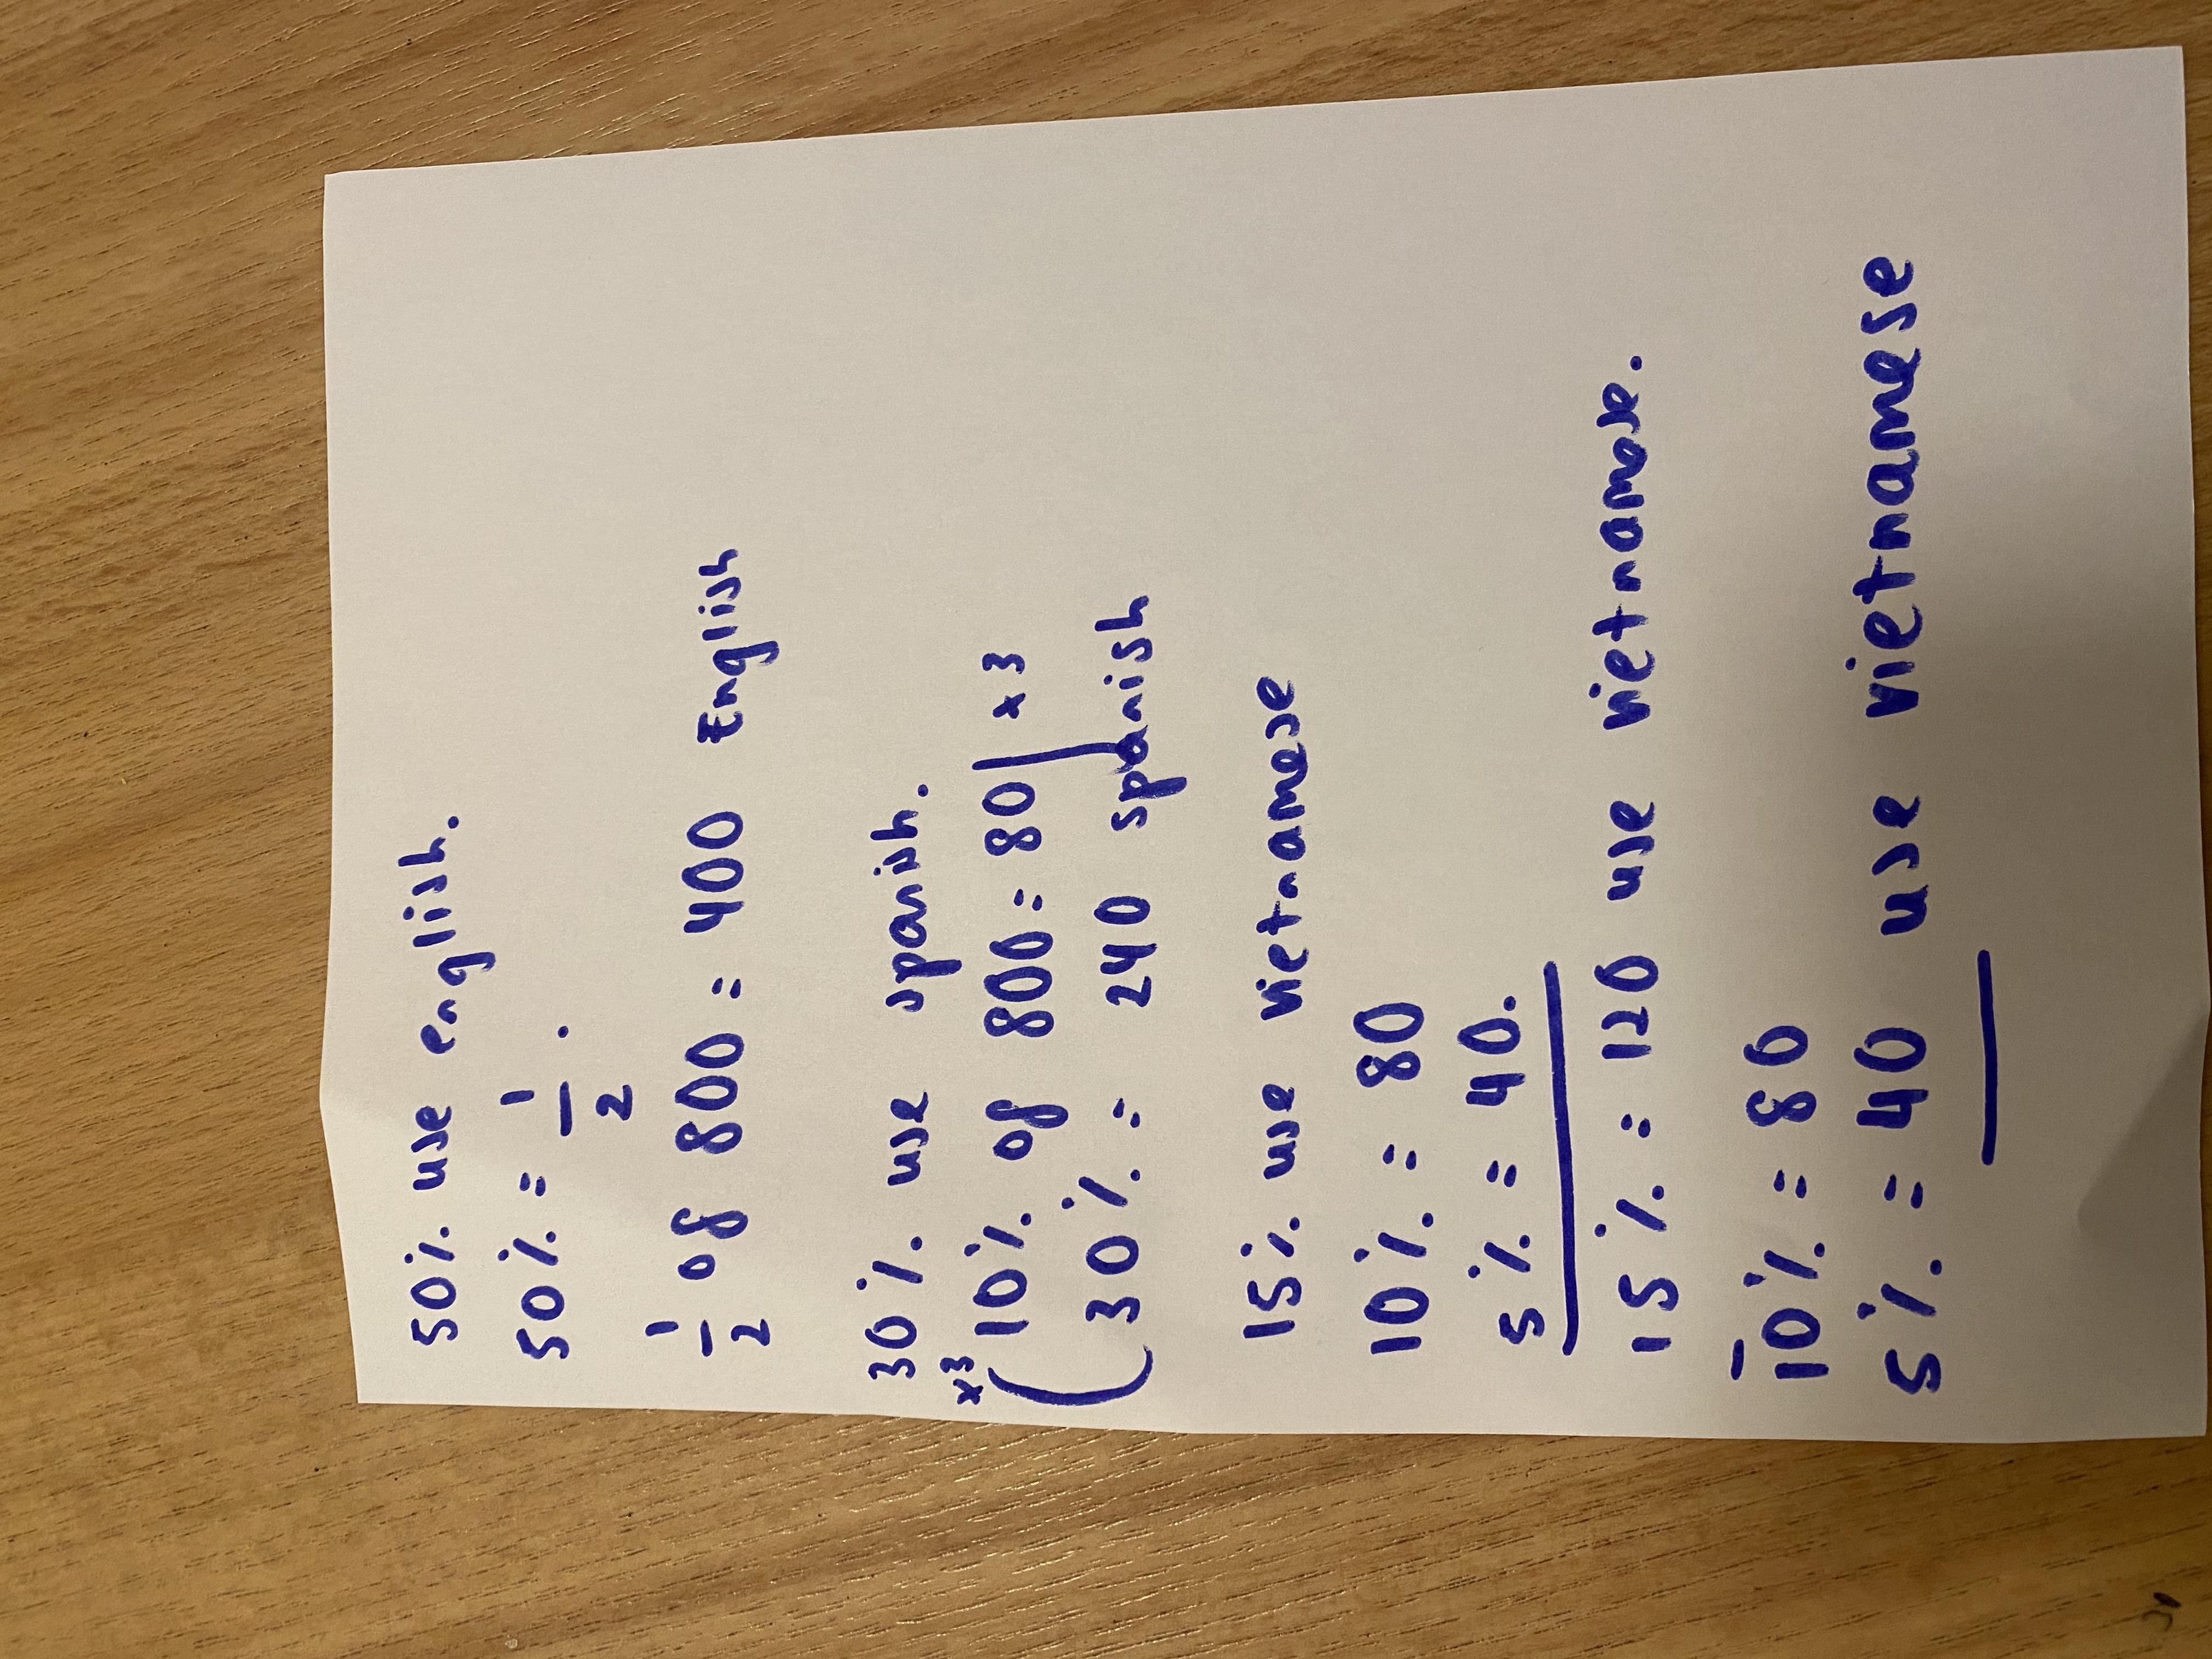 50% use english.
50% = 1/2 .
1/2 of 800 = 400 English
30% use spanish.
x3 10% of 800 = 80 x3
30% = 240 spanish
15% use vietnamese
10% = 80
5% = 40.
15% = 120 use vietnamese.
10% = 80
5% = 40 use vietnamese